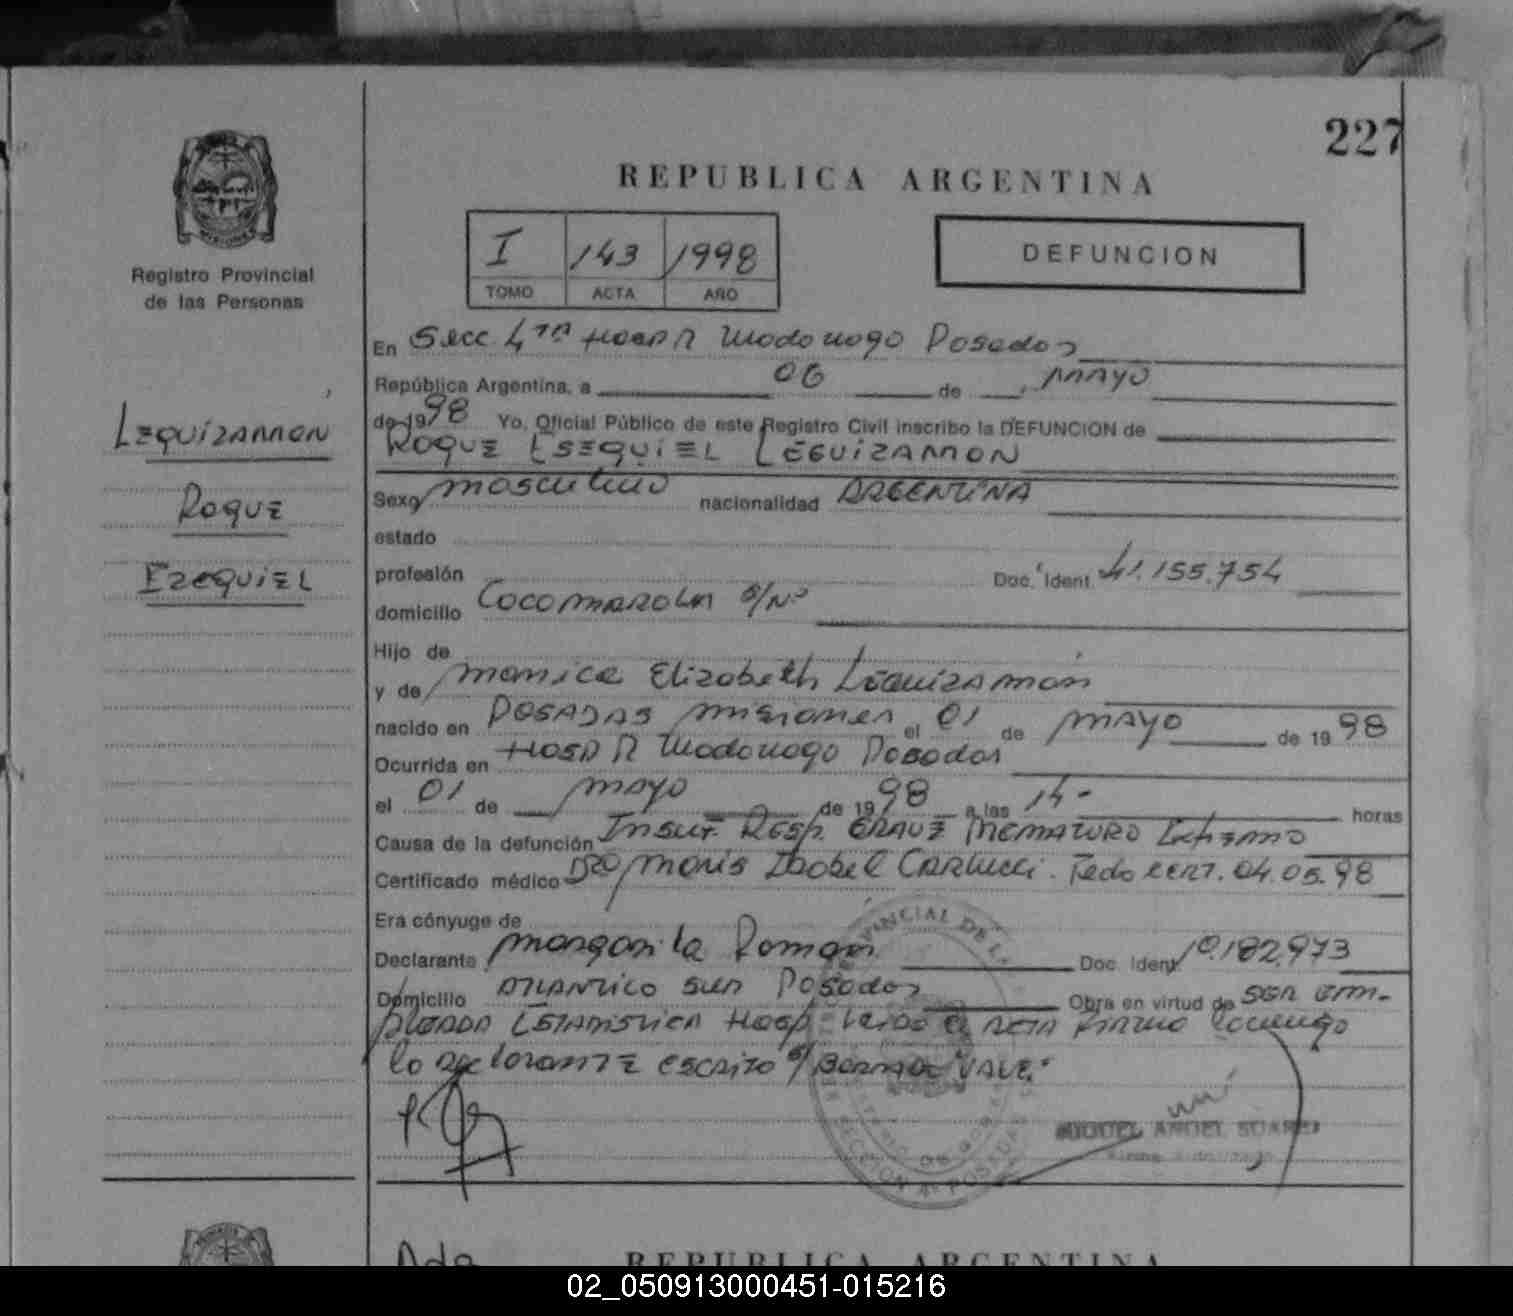 227
REPUBLICA ARGENTINA
MISIONES
Registro Provincial
de las Personas
I 143 1998
TOMO ACTA AÑO
DEFUNCION
En Secc. 4ta Hosp R Madariaga Posadas
República Argentina, a 06 de mayo
de 1998 Yo, Oficial Público de este Registro Civil inscribo la DEFUNCION de
ROQUE ESEQUIEL LEGUIZAMON
LEQUIZAMON
ROQUE
EZEQUIEL
Sexo masculino nacionalidad ARGENTINA
estado
profesión Doc. Ident. 41.155.754
domicilio COCOMAROLA S/Nº
Hijo de
y de Monica Elizabeth Leguizamón
nacido en POSADAS Misiones el 01 de MAYO de 1998
Ocurrida en Hosp R Madariaga Posadas
el 01 de mayo de 1998 a las 14- horas
Causa de la defunción Insuf. Resp. GRAVE PREMATURO Extremo
Certificado médico Dra Isabel Carlucci. Fcdo CERT. 04.05.98
Era cónyuge de
Declarante Margarita Roman Doc. Ident. 10.182.973
Domicilio ATLANTICO SUR Posadas Obra en virtud de SER EM-
PLEADA ESTADISTICA HOSP. Leido el ACTA FIRMO conmigo
la declarante escrito s/ BORRADO "VALE"
MIGUEL ANGEL SUAREZ
SECCION 4ª POSADAS
REPUBLICA ARGENTINA
02_050913000451-015216